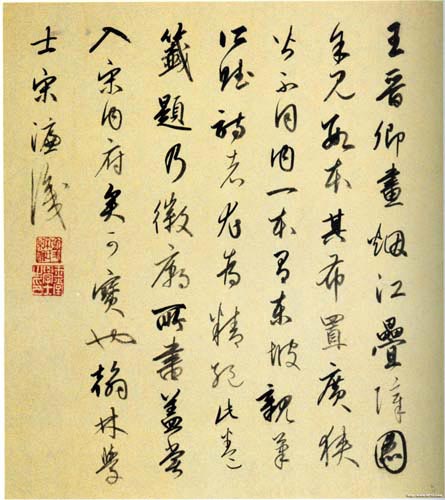 王晉卿畫烟江疊嶂圖
余見數本其布置廣狹
皆不同內一本有東坡親筆
所賦詩者尤為精絕此卷
籤題乃徽廟所書蓋嘗
入宋內府矣可寶也翰林學
士宋濂識